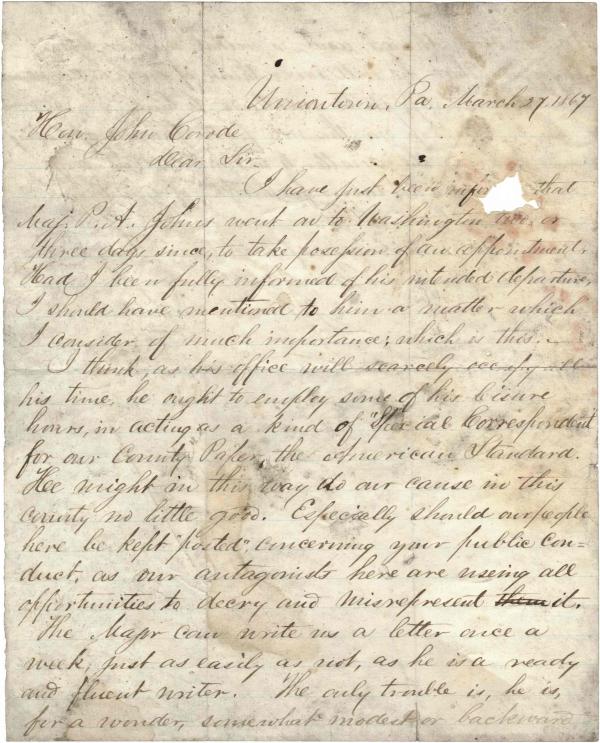 Uniontown, Pa. March 27, 1867
Hon. John Covode
Dear Sir.
I have just been that
Maj. P. A. Johns went on to Washington two or
three days since, to take posession of an appointment.
Had I been fully informed of his intended departure,
I should have mentioned to him a matter which
I consider of much importance; which is this.—
I think, as his office will scarcely occupy all
his time, he ought to employ some of his leisure
hours, in acting as a kind of "Special Correspondent
for our County Paper, the American Standard.
Hee might in this way do our cause in this
county no little good. Especially should our people
here be kept "posted" concerning your public con=
duct, as our antagonists here are useing all
opportunities to decry and misrepresent them it.
The Major can write us a letter once a
week, just as easily as not, as he is a ready
and fluent writer. The only trouble is, he is,
for a wonder, somewhat modest or backward